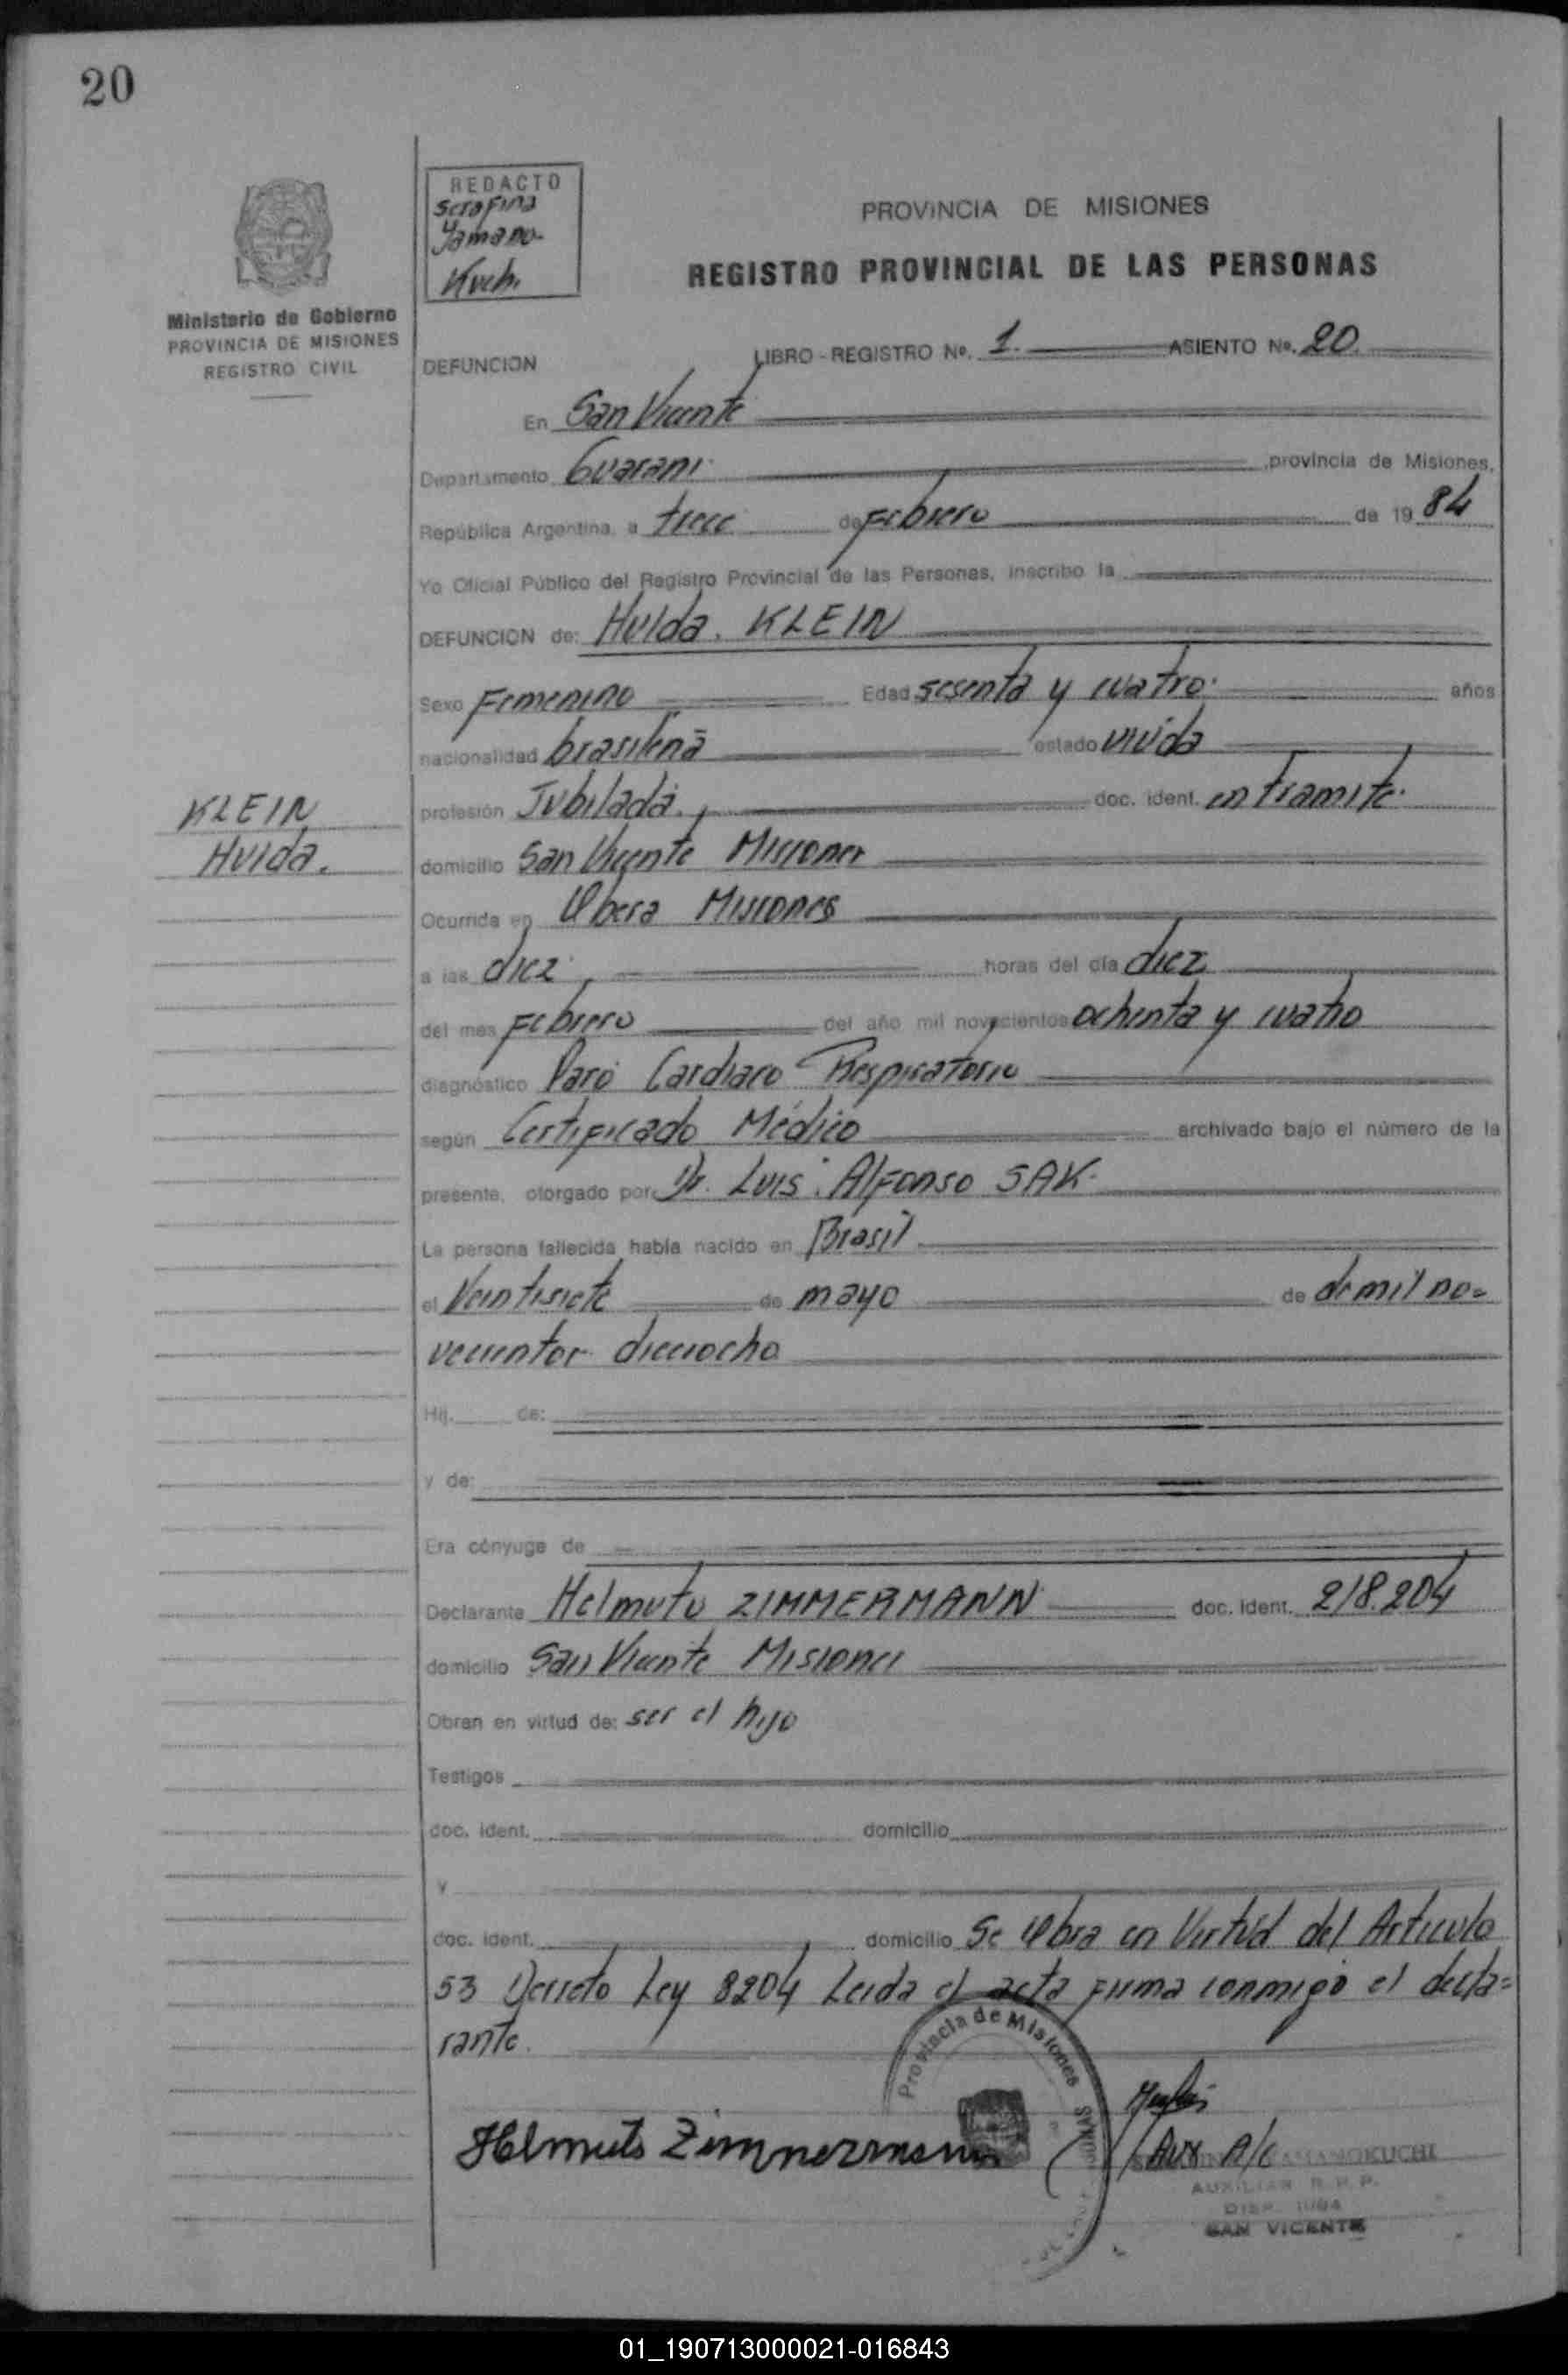 20
REDACTO
Serafina
Yamano-
Kuch.
PROVINCIA DE MISIONES
REGISTRO PROVINCIAL DE LAS PERSONAS
Ministerio de Gobierno
PROVINCIA DE MISIONES
REGISTRO CIVIL
DEFUNCION LIBRO - REGISTRO Nº. 1. ASIENTO Nº. 20.
En San Vicente
Departamento Guarani provincia de Misiones,
República Argentina, a trece de Febrero de 19 84
Yo Oficial Público del Registro Provincial de las Personas, inscribo la
DEFUNCION de: Hulda. KLEIN
Sexo Femenino Edad sesenta y cuatro años
nacionalidad brasileña estado viuda
KLEIN
Hulda.
profesión Jubilada. doc. ident. en tramite.
domicilio San Vicente Misiones
Ocurrida en Obera Misiones
a las diez horas del día diez
del mes Febrero del año mil novecientos ochenta y cuatro
diagnóstico Paro Cardiaco Respiratorio
según Certificado Médico archivado bajo el número de la
presente, otorgado por: Dr. Luis Alfonso SAK.
La persona fallecida había nacido en Brasil
el Veintisiete de mayo de de mil no=
vecientos dieciocho
Hij. de:
y de:
Era cónyuge de
Declarante Helmuto ZIMMERMANN doc. ident. 218.204
domicilio San Vicente Misiones
Obran en virtud de: ser el hijo
Testigos
doc. ident. domicilio
y
doc. ident. domicilio Se Obra en Virtud del Articulo
53 Decreto Ley 8204 Leida el acta firma conmigo el decla=
rante.
Provincia de Misiones
Helmuto Zimmermann
Aux A/C
AUXILIAR R. P. P.
SAN VICENTE
01_190713000021-016843